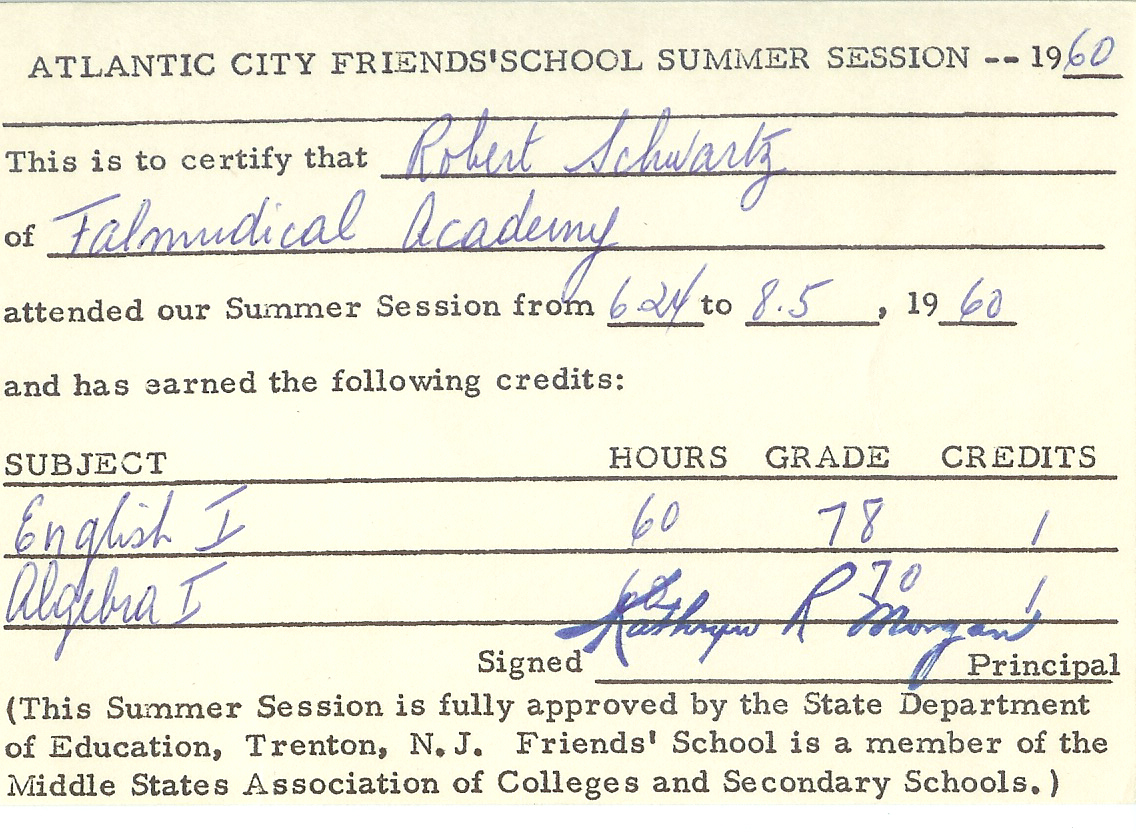 ATLANTIC CITY FRIENDS' SCHOOL SUMMER SESSION -- 1960
This is to certify that Robert Schwartz
of Talmudical Academy
attended our Summer Session from 6-24 to 8.5, 1960
and has earned the following credits:
SUBJECT HOURS GRADE CREDITS
English I 60 78 1
Algebra I 60 70 1
Kathryn R Morgan
Signed Principal
(This Summer Session is fully approved by the State Department
of Education, Trenton, N.J. Friends' School is a member of the
Middle States Association of Colleges and Secondary Schools.)